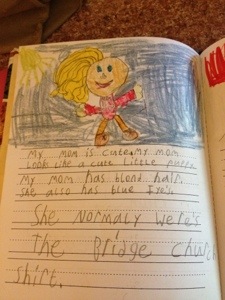 My mom is cute. My mom
Look like a cute little puppy
My mom has blond hair.
She also has blue Eye's.
She Normaly were's
the Bridge church
shirt.